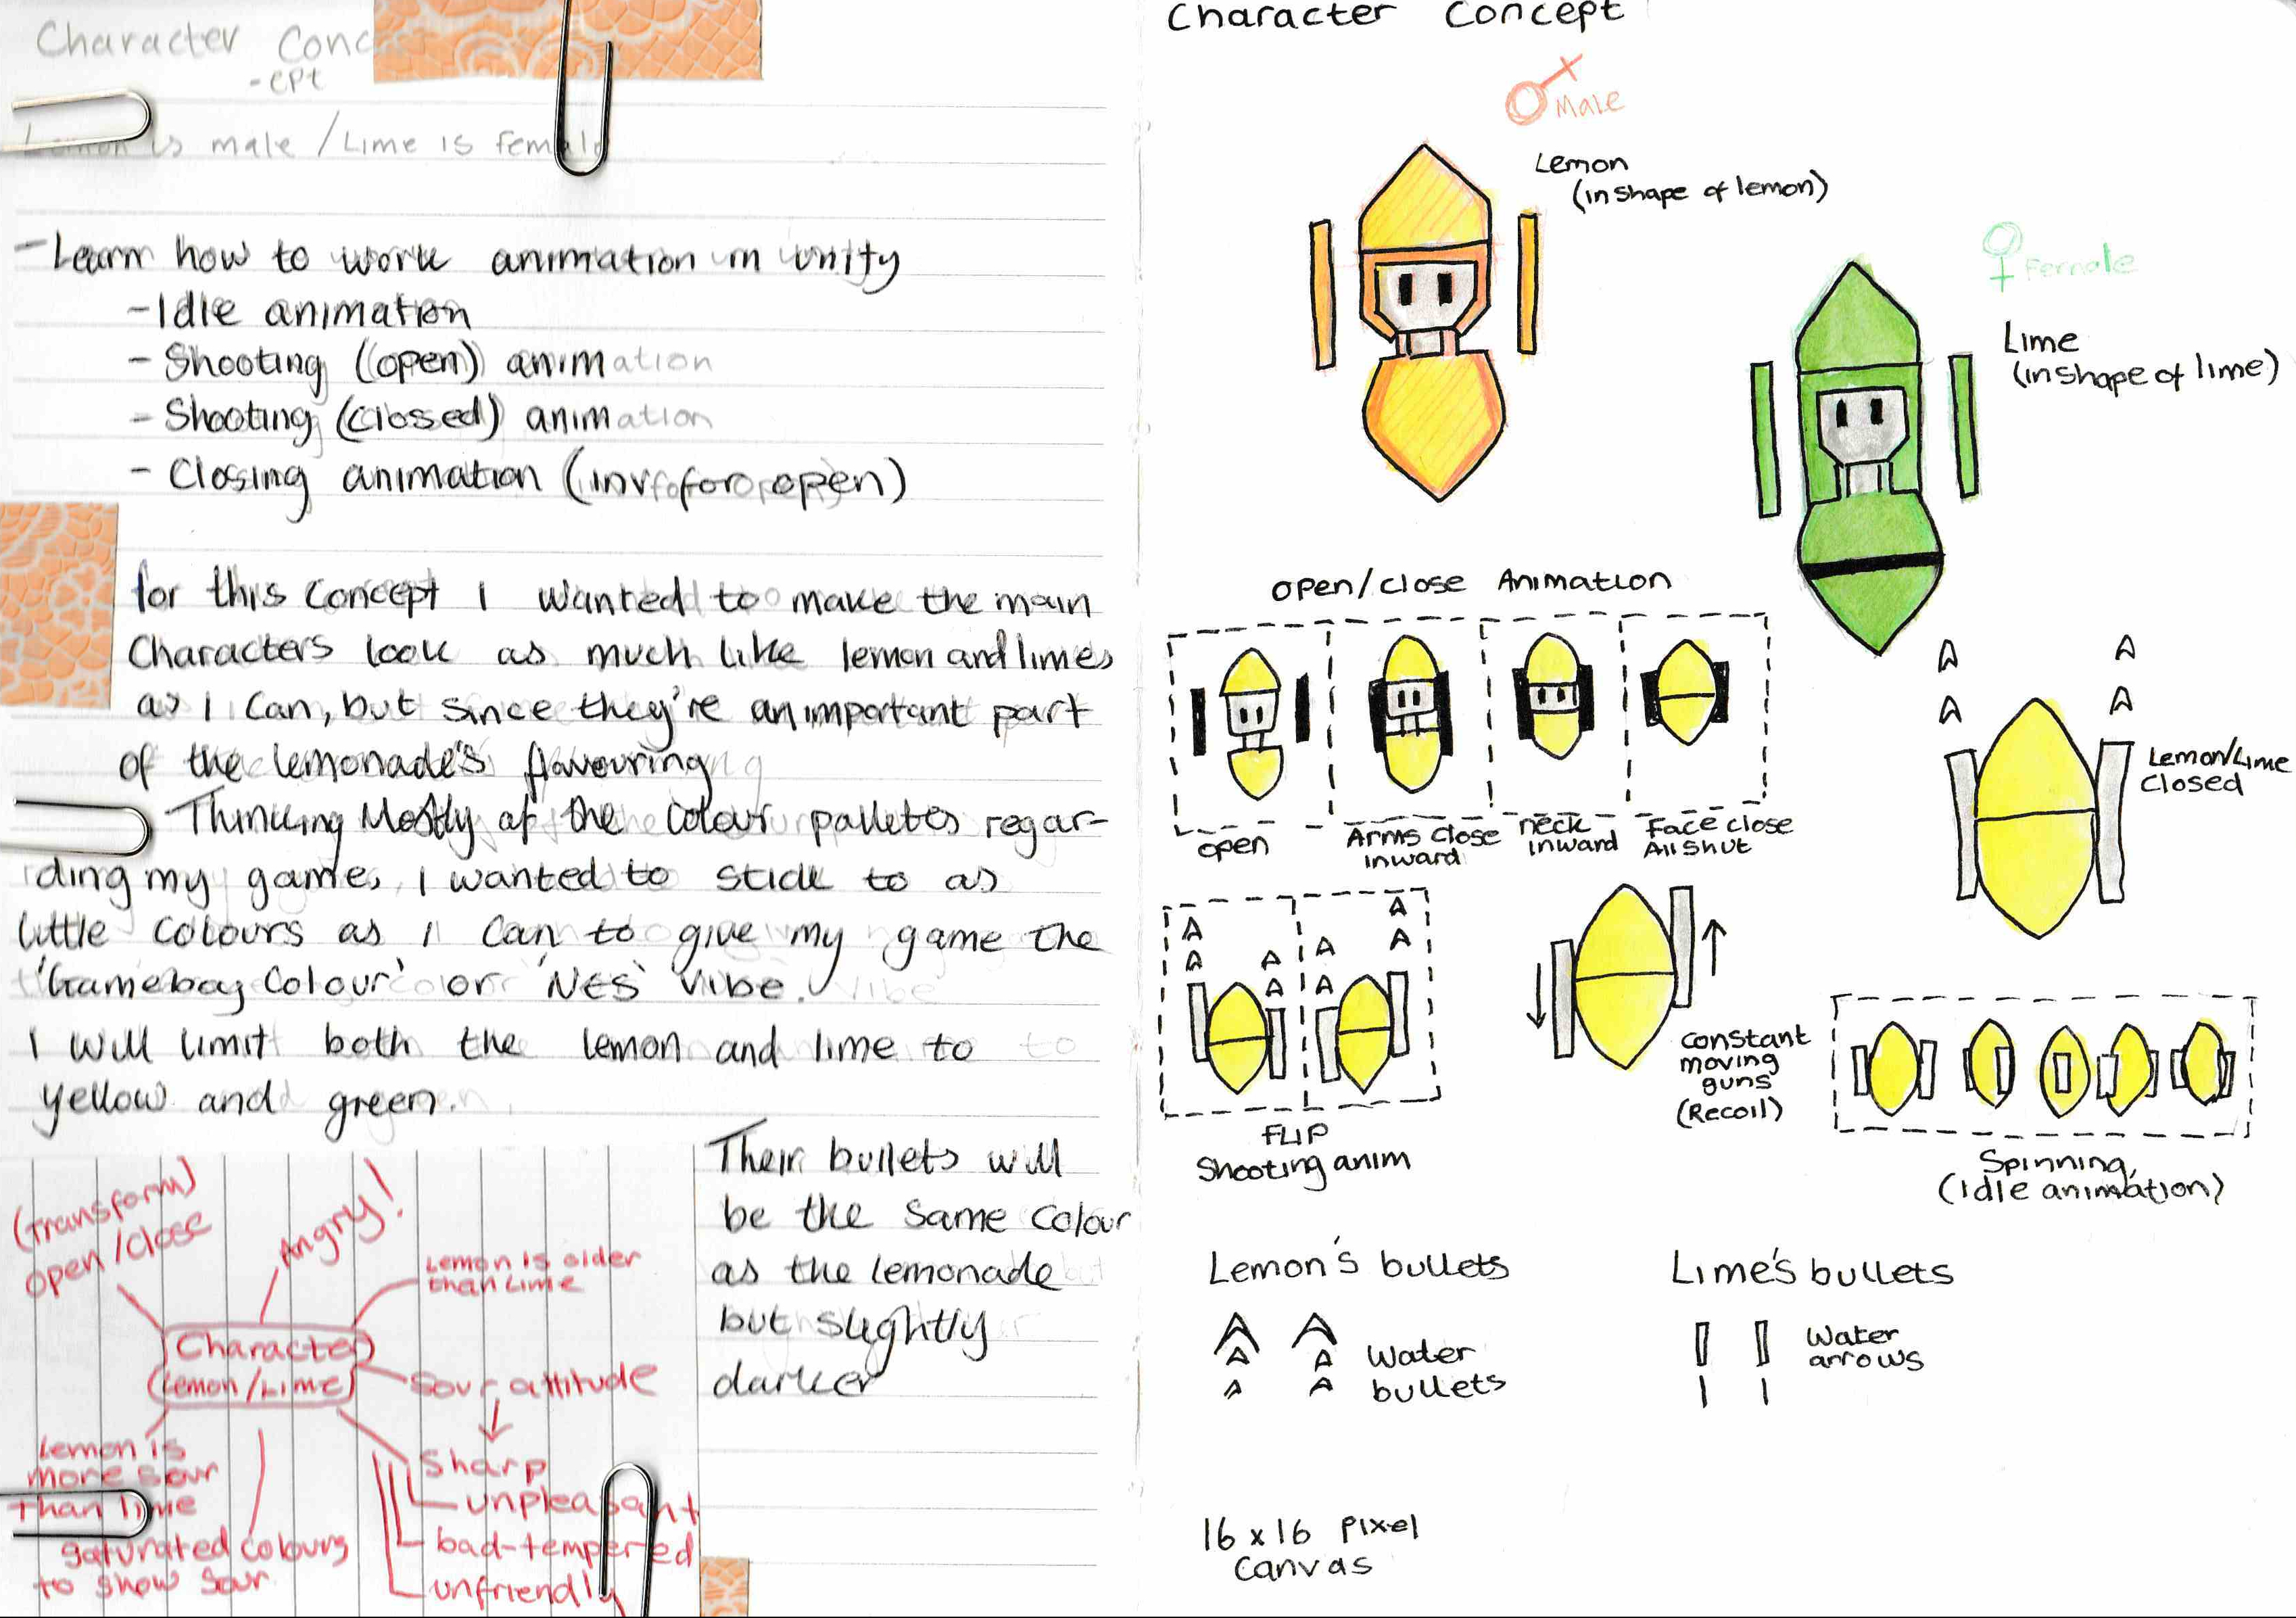 Character Conc
-ept
Lemon is male / Lime is female
- Learn how to work animation in Unity
- Idle animation
- Shooting (open) animation
- Shooting (closed) animation
- Closing animation (inv for open)
for this concept I wanted to make the main
characters look as much like lemon and limes
as I can, but since they're an important part
of the lemonade's flavouring
Thinking Mostly of the colour palletes regar-
ding my game, I wanted to stick to as
little colours as I can to give my game the
'Gameboy Colour' or 'NES' vibe.
I will limit both the lemon and lime to
yellow and green.
Their bullets will
be the same colour
as the lemonade
but slightly
darker
(transform)
open/close
Angry!
Lemon is older
than Lime
Character
(Lemon/Lime)
Sour attitude
Sharp
unpleasant
bad-tempered
unfriendly
Lemon is
more sour
than lime
saturated colours
to show sour
Character Concept
Male
Lemon
(in shape of lemon)
Female
Lime
(in shape of lime)
open/close Animation
open
Arms close
inward
neck
inward
Face close
All shut
Lemon/Lime
Closed
FLIP
Shooting anim
constant
moving
guns
(Recoil)
Spinning
(Idle animation)
Lemon's bullets
Water
bullets
Lime's bullets
Water
arrows
16 x 16 pixel
canvas